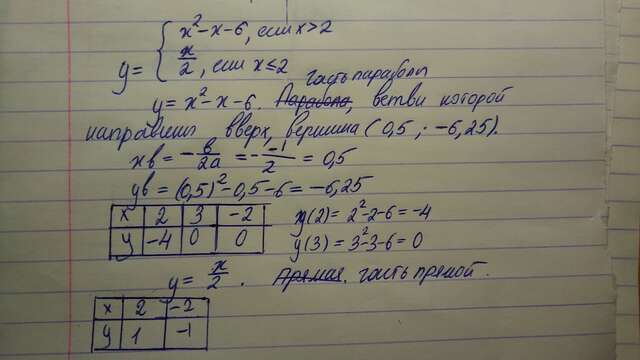 y = { x² - x - 6, если x > 2
x/2, если x ≤ 2
часть параболы
y = x² - x - 6. Парабола, ветви которой
направлены вверх, вершина (0,5 ; -6,25).
xв = - в/2а = - -1/2 = 0,5
yв = (0,5)² - 0,5 - 6 = -6,25
x 2 3 -2
y -4 0 0
y(2) = 2² - 2 - 6 = -4
y(3) = 3² - 3 - 6 = 0
y = x/2 . Прямая. часть прямой.
x 2 -2
y 1 -1